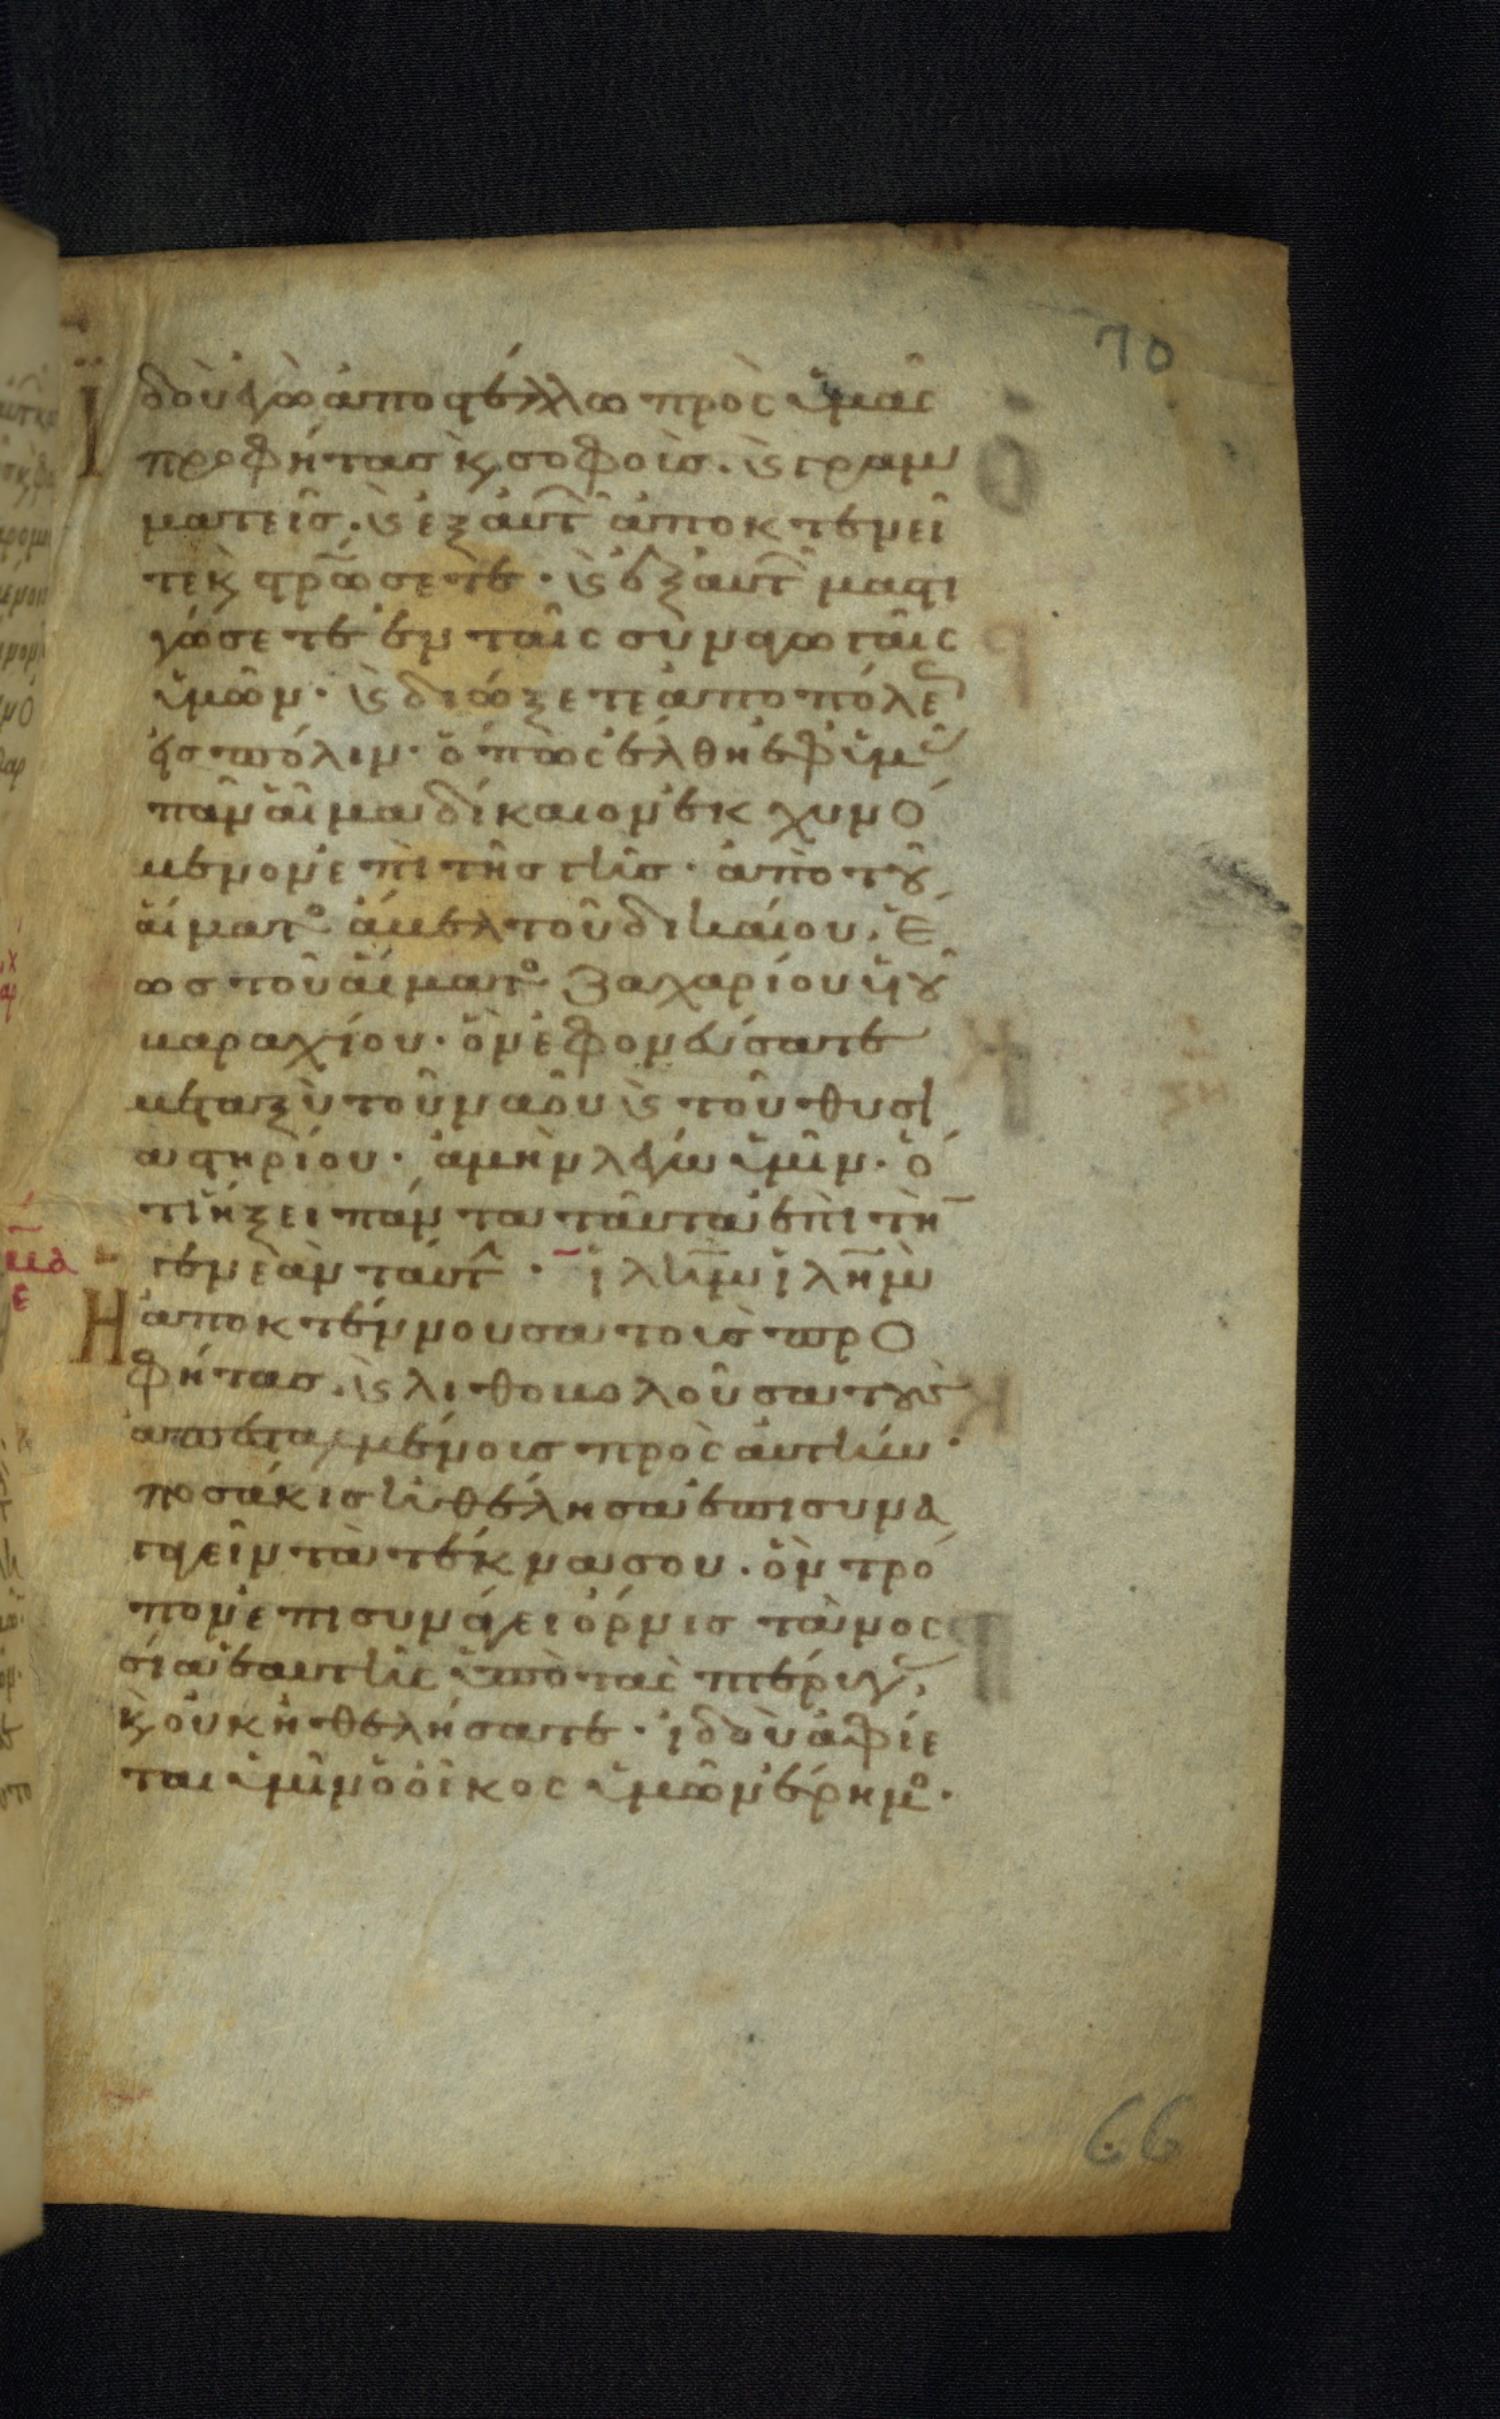 70
Ἰδοὺ ἐγὼ ἀποστέλλω πρὸς ὑμᾶς
προφήτας κ σοφοὺς. κ γραμ
ματεῖς. κ ἐξ αὐτ ἀποκτενεῖ
τε κ στρῶσετε. κ ἐξ αὐτ μαστι
γώσετε ἐν ταῖς συναγωγαῖς
ὑμῶν. κ διώξετε ἀπο πόλε
εἰς πόλιν. ὅπως ἔλθη ἐφ ὑμ
πᾶν αἷμα δίκαιον ἐκχυνό
μενον ἐπὶ τῆς γῆς. ἀπὸ τοῦ
αἵματος ἄβελ τοῦ δικαίου. ἕ
ως τοῦ αἵματος ζαχαρίου υἱοῦ
βαραχίου. ὃν ἐφονεύσατε
μεταξὺ τοῦ ναοῦ κ τοῦ θυσι
αστηρίου. ἀμὴν λέγω ὑμῖν. ὅ
τι ἥξει πάντα ταῦτα ἐπὶ τὴ
γενεὰν ταύτ. ἰλημ ἰλημ
Ἡ ἀποκτέννουσα τοὺς προ
φήτας. κ λιθοβολοῦσα τοὺς
ἀπεσταλμένους πρὸς αὐτήν.
ποσάκις ἠθέλησα ἐπισυνα
γαγεῖν τὰ τέκνα σου. ὃν τρό
πον ἐπισυνάγει ὄρνις τὰ νοσ
σία ἑαυτῆς ὑπὸ τὰς πτέρυγ,
κ οὐκ ἠθελήσατε. ἰδοὺ ἀφίε
ται ὑμῖν ὁ οἶκος ὑμῶν ἔρημος.
66